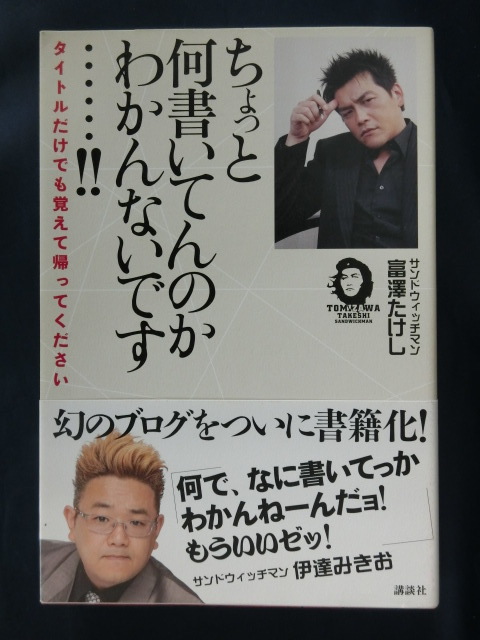 ちょっと
何書いてんのか
わかんないです
……!!
タイトルだけでも覚えて帰ってください
サンドウィッチマン
富澤たけし
TOMIZAWA
TAKESHI
SANDWICHMAN
幻のブログをついに書籍化!
「何で、なに書いてっか
わかんねーんだョ!
もういいゼッ!」
サンドウィッチマン 伊達みきお
講談社